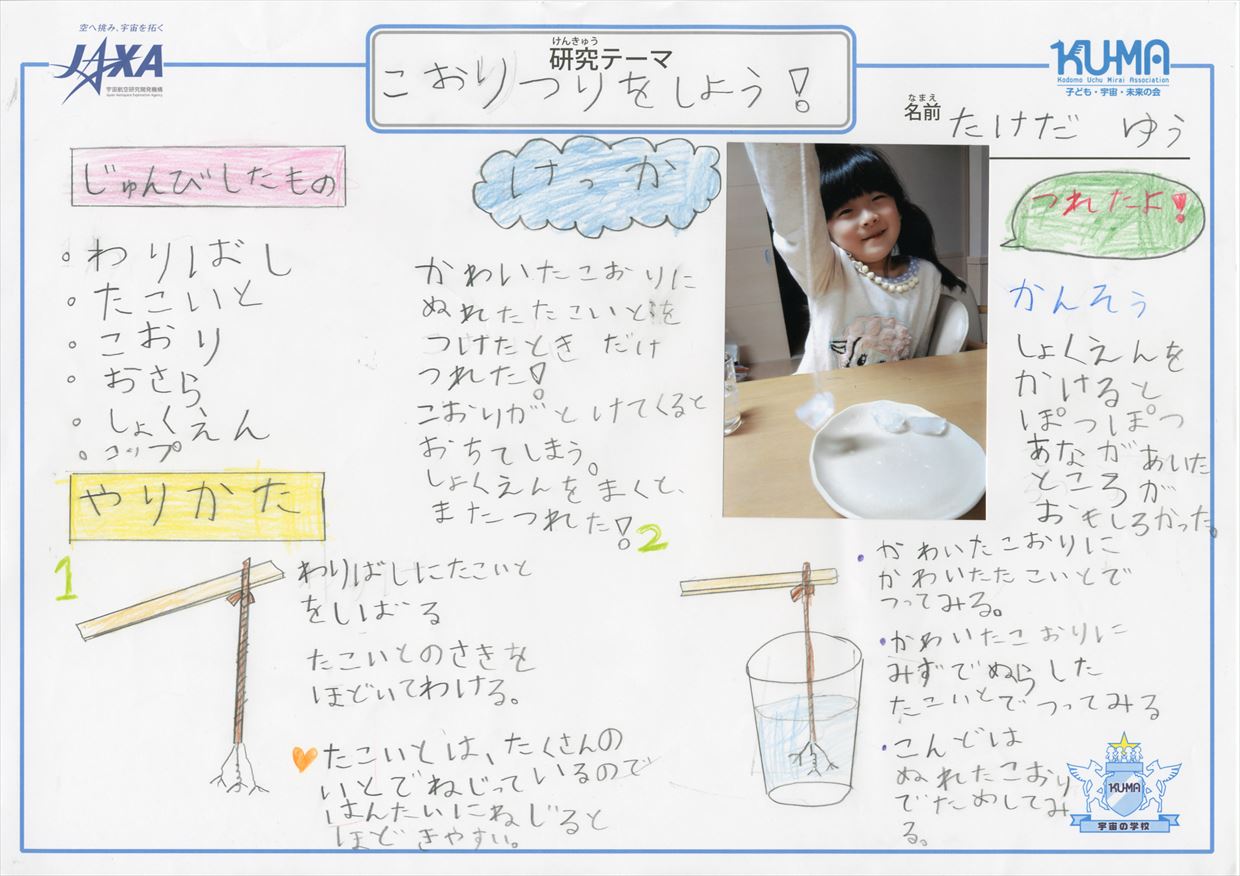 空へ挑み、宇宙を拓く
JAXA
宇宙航空研究開発機構
Japan Aerospace Exploration Agency
けんきゅう
研究テーマ
こおりつりをしよう!
KU-MA
Kodomo Uchu Mirai Association
子ども・宇宙・未来の会
なまえ
名前
たけだ ゆう
じゅんびしたもの
・わりばし
・たこいと
・こおり
・おさら
・しょくえん
・コップ
けっか
かわいたこおりに
ぬれたたこいとを
つけたとき だけ
つれた!
こおりがとけてくると
おちてしまう。
しょくえんをまくと、
またつれた!
つれたよ!
かんそう
しょくえんを
かけると
ぽつぽつ
あながあいた
ところが
おもしろかった。
やりかた
1
わりばしにたこいと
をしばる
たこいとのさきを
ほどいてわける。
たこいとは、たくさんの
いとでねじっているので
はんたいにねじると
ほどきやすい。
2
・かわいたこおりに
かわいたたこいとで
つってみる。
・かわいたこおりに
みずでぬらした
たこいとでつってみる
・こんどは
ぬれたこおり
でためしてみ
る。
KU-MA
宇宙の学校